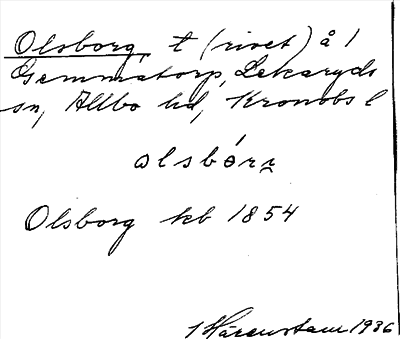 Olsborg, t (rivet) å 1
Gemmatorp, Lekaryds
sn, Allbo hd, Kronobs l
olsbórꞥ
Olsborg kb 1854
1 Härenstam 1936